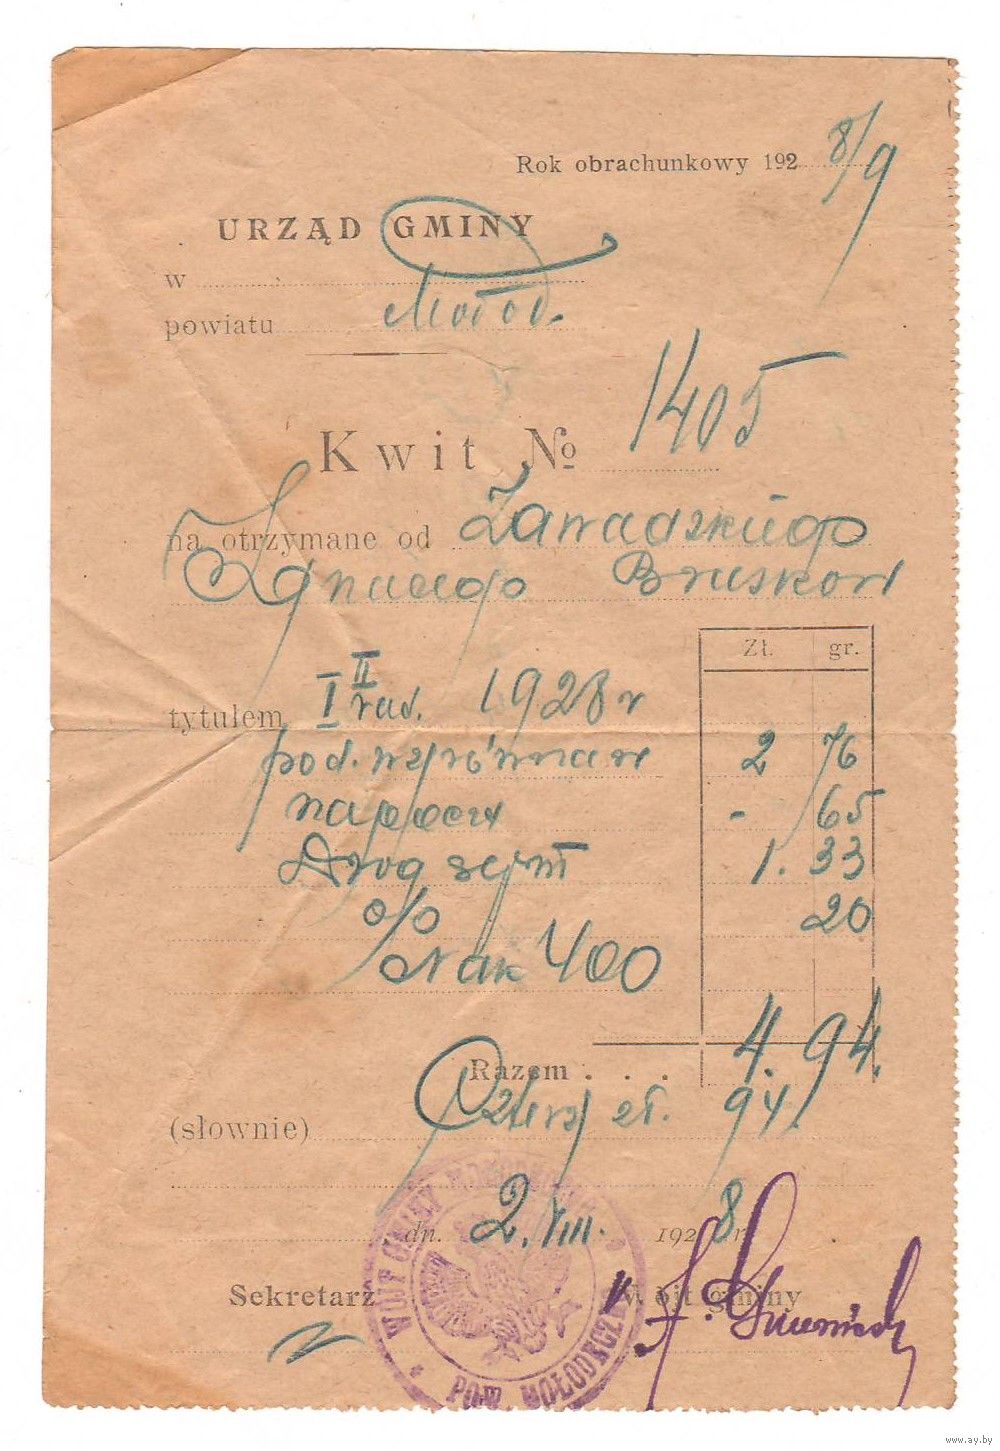 Rok obrachunkowy 1928/9
URZĄD GMINY
w
powiatu Mołod.
Kwit № 1405
na otrzymane od Zawadzkiego
Ignacego
Zł. gr.
tytułem I II rad. 1928 r
pod. wyrównaw 2 76
- 65
Drog sejm 1. 33
o/o 20
Nak 400
Razem . . . 4. 94.
(słownie) Cztery zł. 94
dn. 2. VIII. 1928 r
Sekretarz Wójt gminy
WÓJT GMINY
POW. MOŁODECZN
www.ay.by